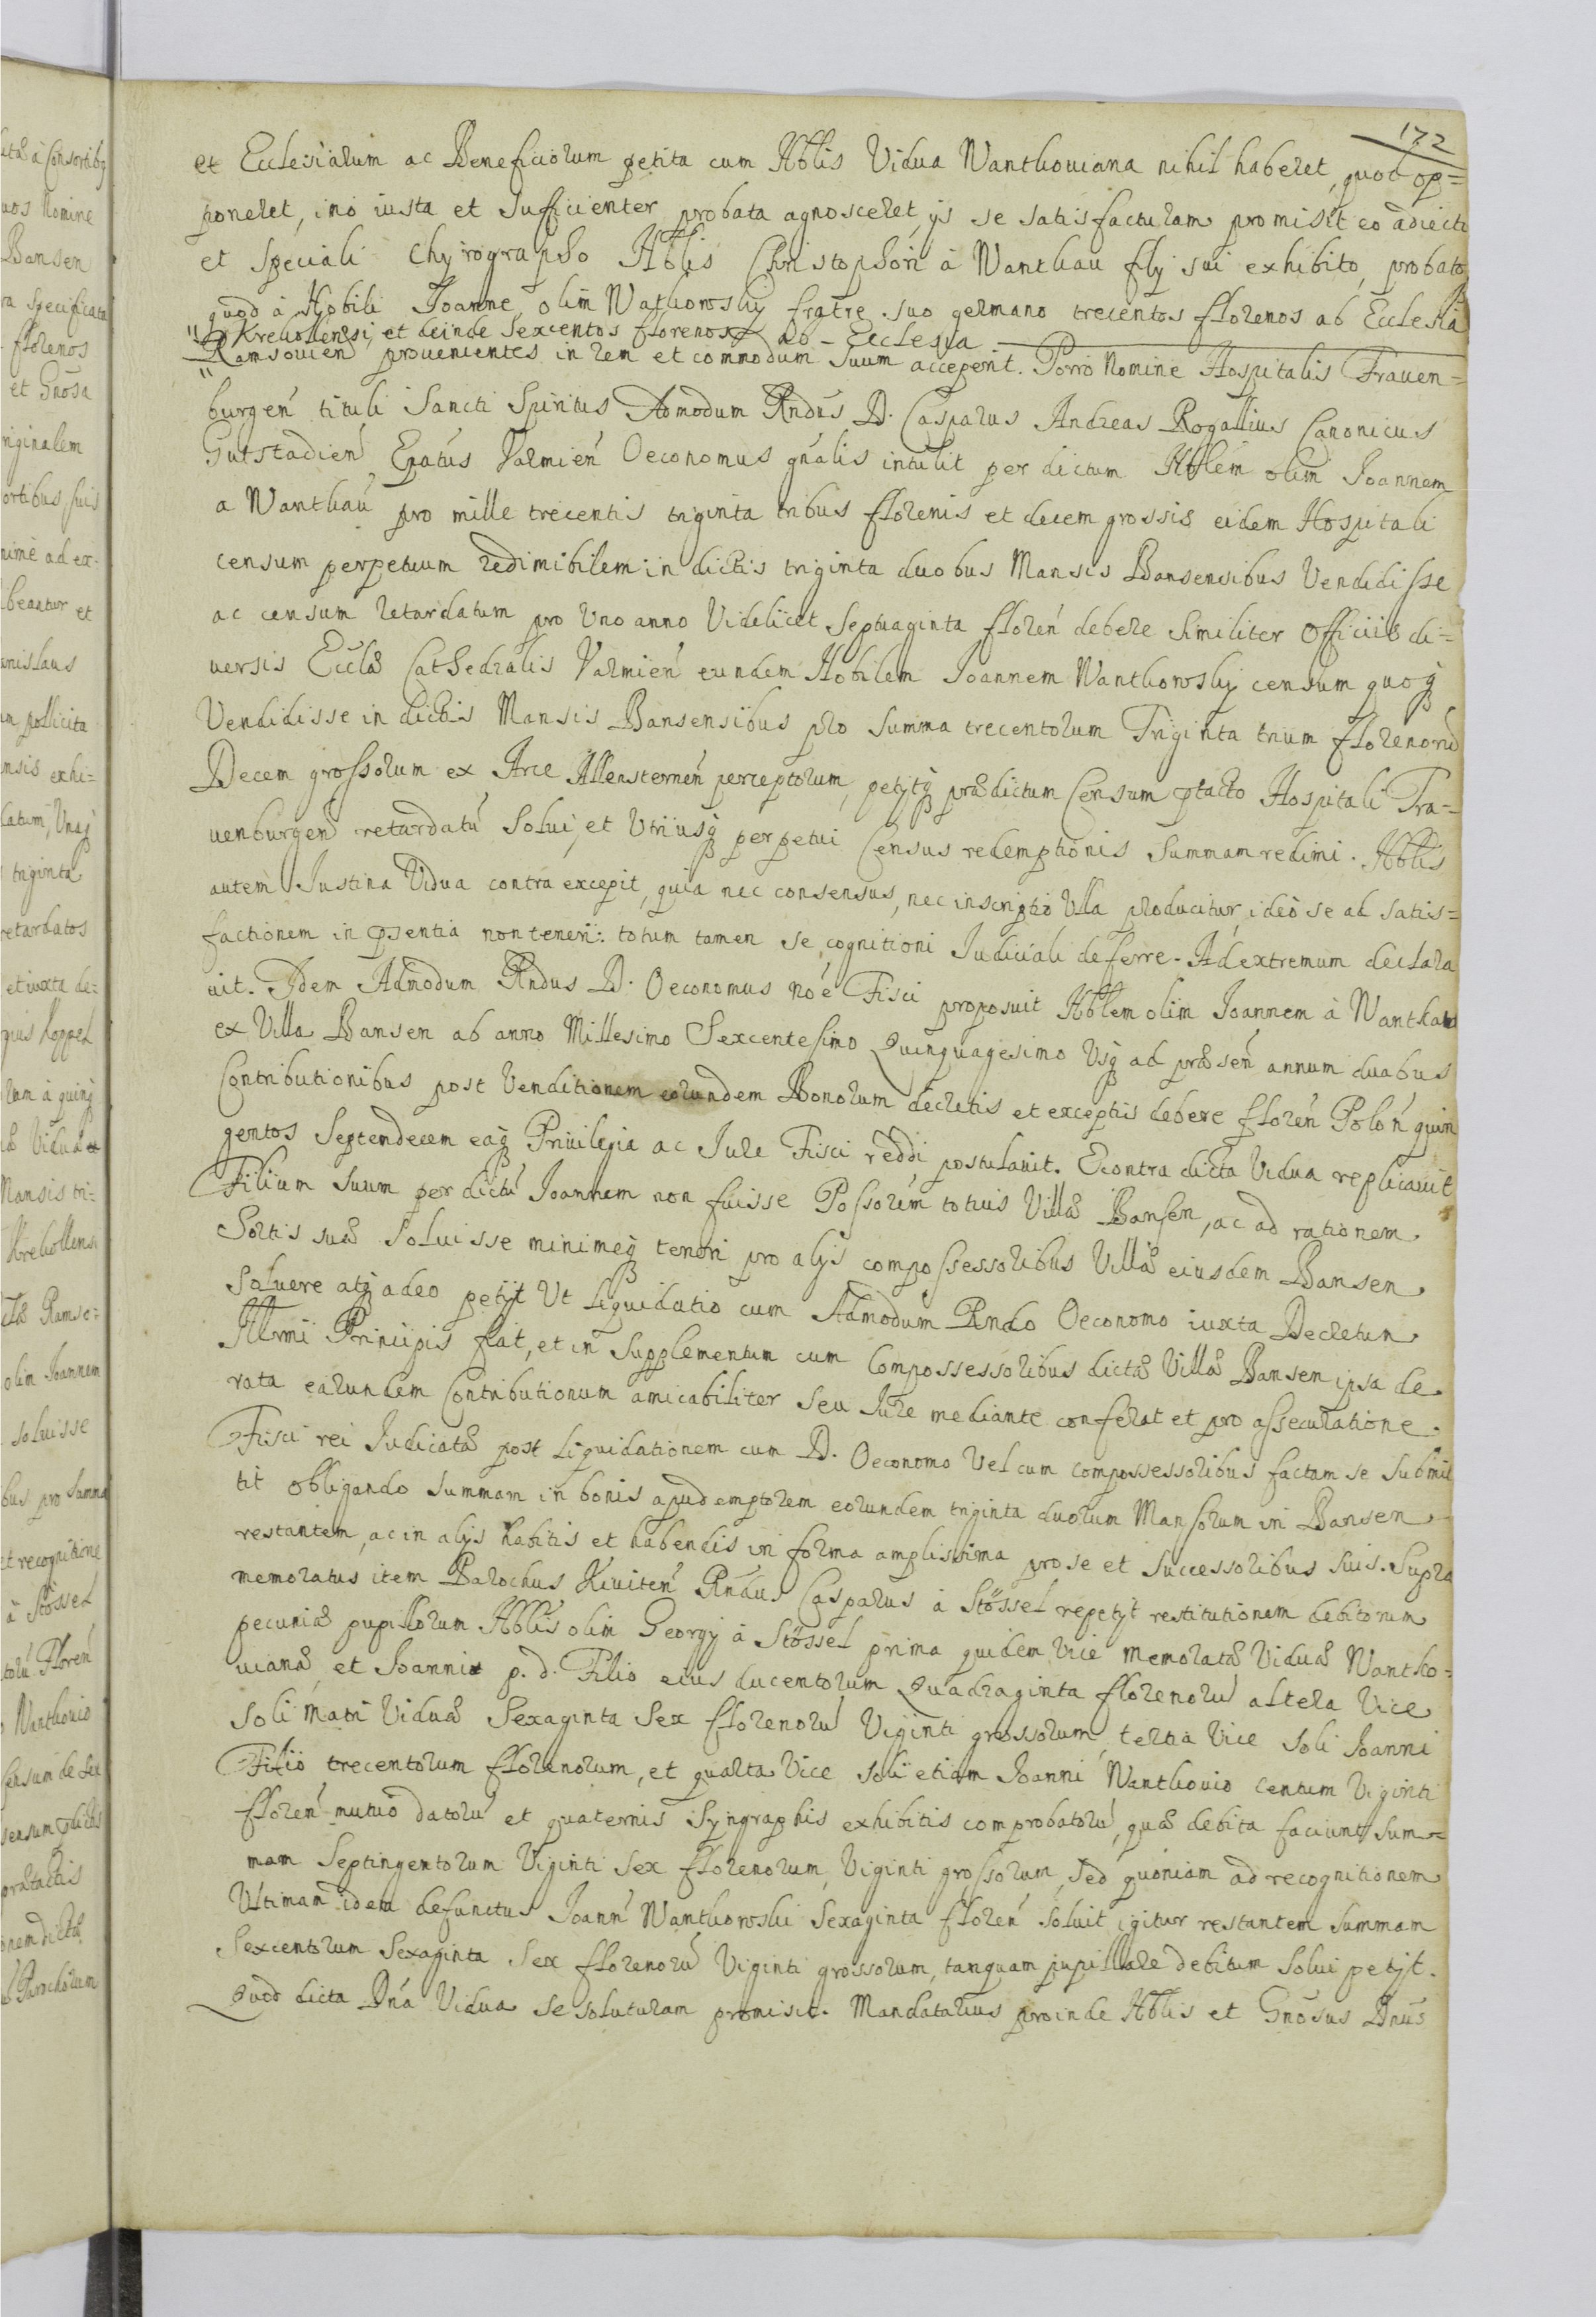 172
et Ecclesiarum ac Beneficiorum petita cum Nblis Vidua Wantkouiana nihil haberet, quod op=
poneret, imò iusta et sufficienter probata agnosceret, ijs se satisfacturam promisit eo adiecto
et speciali Chyrographo Nblis Christophori à Wantkau fily sui exhibito, probato
quod à Nobili Joanne olim Watkowskij fratre suo germano trecentos florenos ab Ecclesia
Krekollensi, et deinde sexcentos florenos ab Ecclesia
Ramsouien prouenientes in rem et commodum suum acceperit. Porrò Nomine Hospitalis Frauen=
burgen tituli Sancti Spiritus Admodum Rndus D. Casparus Andreas Rogallius Canonicus
Gutstadien Epatus Varmien Oeconomus gnalis intulit per dictum Nblem olim Joannem
a Wantkau pro mille trecentis triginta tribus florenis et decem grossis eidem Hospitali
censum perpetuum redimibilem in dictis triginta duobus Mansis Bansensibus Vendidisse
ac censum retardatum pro Vno anno Videlicet Septuaginta floren debere Similiter Officiis di=
uersis Eccla Cathedralis Varmien eundem Nobilem Joannem Wantkowskij censum quoq
Vendidisse in dictis Mansis Bansensibus pro Summa trecentorum Triginta trium florenoru
Decem grossorum ex Arce Allensteinen perceptorum, petijtq prædictum Censum ptacto Hospitali Fra=
uenburgen retardatu Solui, et Vtriusq perpetui Census redemptionis Summam redimi. Nblis
autem Justina Vidua contra excepit, quia nec consensus, nec inscriptio Vlla producitur, ideò se ad satis=
factionem in psentia non teneri: totum tamen se cognitioni Judiciali deferre. Ad extremum declara
uit. Idem Admodum Rndus D. Oeconomus noe Fisci proposuit Nblem olim Joannem à Wantkau
ex Villa Bansen ab anno Millesimo Sexcentesimo Quinquagesimo Vsq ad præsen annum duabus
Contributionibus post Venditionem eorundem Bonorum decretis et exceptis debere floren Polon quin
gentos Septendecem eaq Priuilegia ac Jure Fisci reddi postulauit. Econtra dicta Vidua replicauit
Filium suum per dictu Joannem non fuisse Possorem totius Villæ Bansen, ac ad rationem
Sortis suæ Soluisse minimeq teneri pro alijs compossessoribus Villæ eiusdem Bansen
Soluere atq adeo petijt Vt Liquidatio cum Admodum Rndo Oeconomo iuxta Decretum
Illrmi Principis fiat, et in Supplementum cum Compossessoribus dictæ Villæ Bansen ipsa de
rata earundem Contributionum amicabiliter seu Jure mediante conferat et pro assecuratione
Fisci rei Judicatæ post Liquidationem cum D. Oeconomo Vel cum compossessoribus factam se Submit
tit obligando summam in bonis apud emptorem eorundem triginta duorum Mansorum in Bansen
restantem, ac in alijs habitis et habendis in forma amplissima pro se et Successoribus suis. Supra
memoratus item Parochus Kiuiten Rndus Casparus à Stössel repetijt restitutionem debitorum
pecuniæ pupillorum Nblis olim Georgij à Stössel prima quidem Vice memoratæ Viduæ Wantko=
uianæ et Joanni p. d. Filio eius ducentorum Quadraginta florenoru altera Vice
Soli Matri Viduæ Sexaginta Sex florenoru Viginti grossorum, tertia Vice Soli Joanni
Filio trecentorum florenorum, et quarta Vice soli etiam Joanni Wantkouio centum Viginti
floren mutuò datoru et quaternis Syngraphis exhibitis comprobatoru, quæ debita faciunt Sum=
mam Septingentorum Viginti Sex florenorum, Viginti grossorum, sed quoniam ad recognitionem
Vltimam idem defunctus Joann Wantkowski Sexaginta floren soluit, igitur restantem summam
Sexcentorum Sexaginta Sex florenoru Viginti grossorum, tanquam pupillare debitum Solui petijt.
Quod dicta Dna Vidua se soluturam promisit. Mandatarius proinde Nblis et Gnosus Dnus